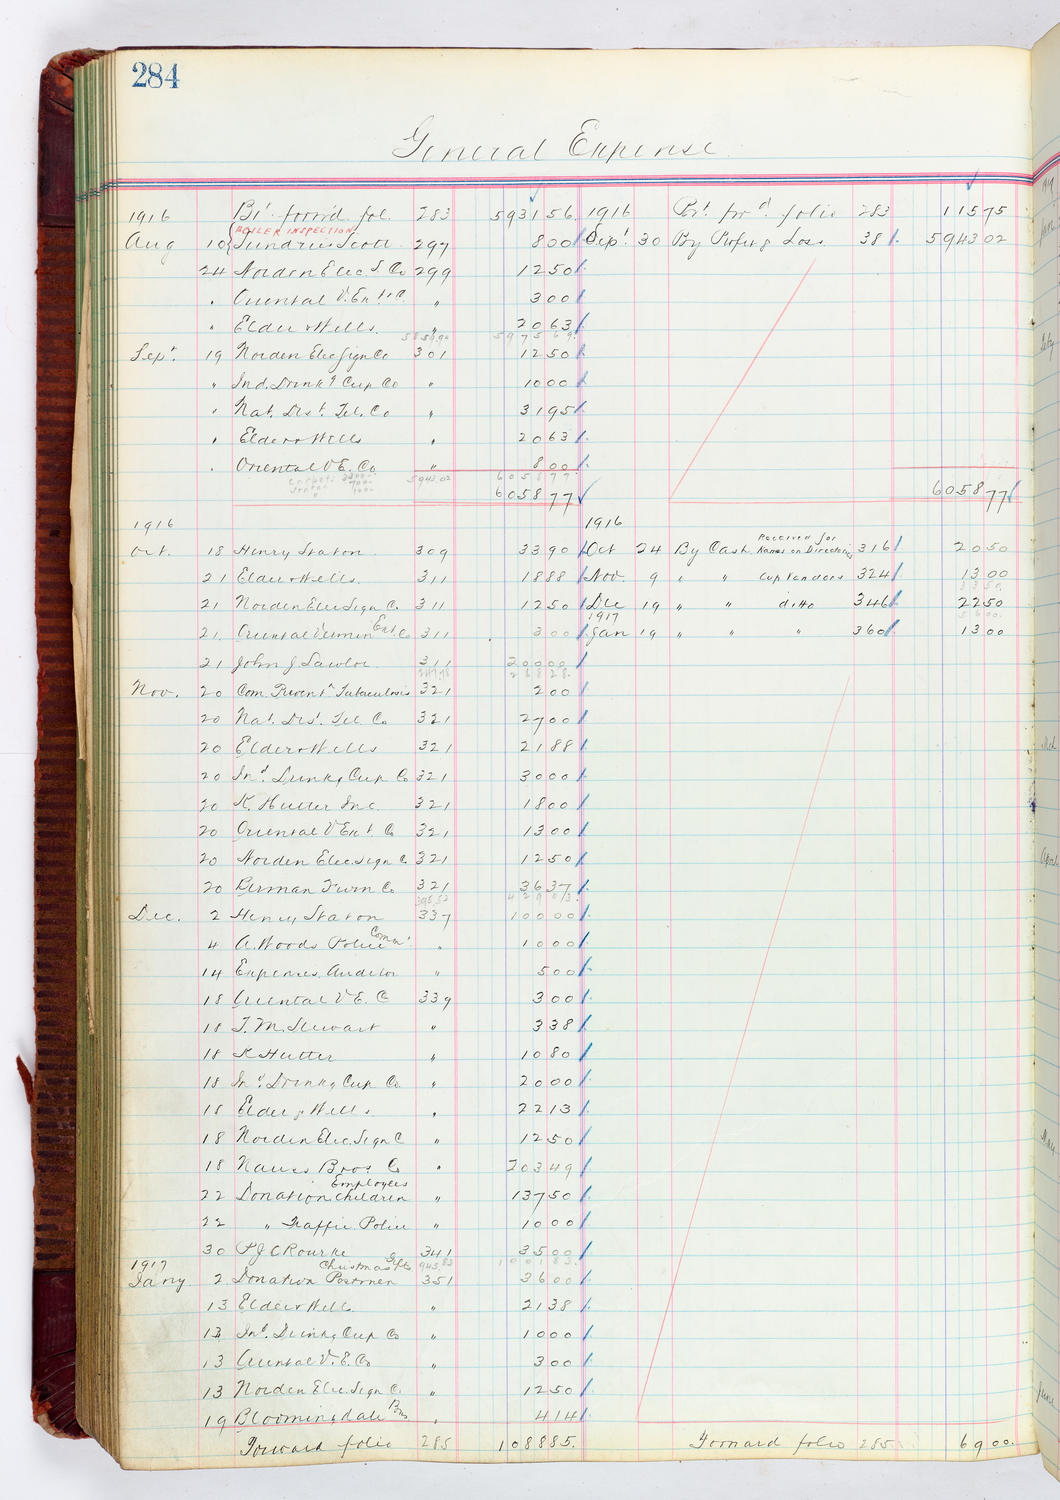 284
General Expense
1916 Bt. forw'd fol. 283 5931 56 1916 Bt. for'd folio 283 115 75
BOILER INSPECTION
Aug 10 Sundries Scott 297 8 00 Sept. 30 By Profit & Loss 38 5943 02
24 Norden Elec S. Co 299 12 50
" Oriental V. Ext. C. " 3 00
" Elder & Wells. " 20 63
5859.90 5975 69
Sept. 19 Norden Elec Sign Co 301 12 50
" Ind. Drink'g Cup Co " 10 00
" Nat. Dist. Tel. Co " 31 95
" Elder & Wells " 20 63
" Oriental V E. Co " 8 00
5943.02 6058 77
6058 77 6058 77
1916 1916
Oct. 18 Henry Staton 309 33 90 Oct 24 By Cash Received for Names on Directories 316 20 50
21 Elder & Wells. 311 18 88 Nov. 9 " " Cup Vendors 324 13 00
33 50
21 Norden Elec Sign C. 311 12 50 Dec 19 " " ditto 346 22 50
1917 56 00
21 Oriental Vermin Ext. Co 311 3 00 Jan 19 " " " 360 13 00
21 John J Lawlor 311 200 00
247.78 268 28
Nov. 20 Com. Prevent'n Tuberculosis 321 2 00
20 Nat. Dist. Tel Co 321 27 00
20 Elder & Wells 321 21 88
20 Ind. Drink'g Cup Co 321 30 00
20 K. Hutter Inc. 321 18 00
20 Oriental V Ext. Co 321 13 00
20 Norden Elec. Sign C 321 12 50
20 Berman Furn Co 321 36 37
395.53 429 03
Dec. 2 Henry Staton 337 100 00
4 A. Woods Police Comm'r. " 10 00
14 Expenses Auditor " 5 00
18 Oriental V E. C 339 3 00
18 T. M. Stewart " 3 38
18 K Hutter " 10 80
18 Ind. Drink'g Cup Co. " 20 00
18 Elder & Wells " 22 13
18 Norden Elec. Sign C " 12 50
18 Bros. Co " 203 49
22 Donation Employees children " 137 50
22 " Traffic Police " 10 00
30 P J O Rourke 341 35 00
1917 943.83 1001 83
Jany 2 Donation Postmen Christmas Gifts 351 36 00
13 Elder & Wells. " 21 38
13 Ind. Drink'g Cup Co " 10 00
13 Oriental V. E. Co " 3 00
13 Norden Elec. Sign C. " 12 50
19 Bloomingdale Bros " 4 14
Forward folio 285 1088 85. Forward folio 285 69 00.